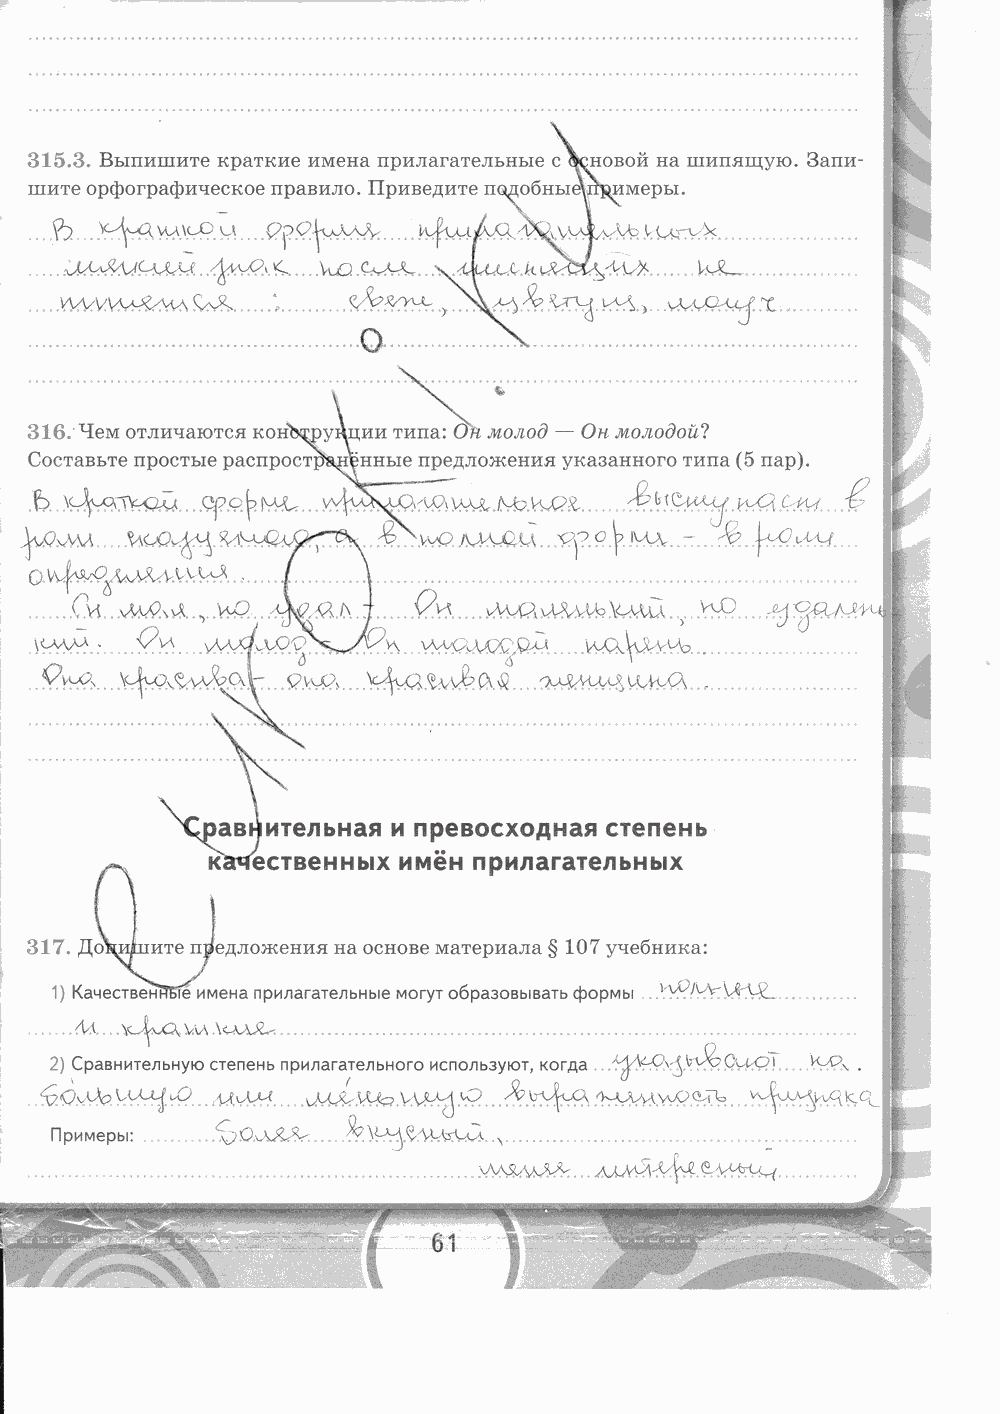 315.3. Выпишите краткие имена прилагательные с основой на шипящую. Запи-
шите орфографическое правило. Приведите подобные примеры.
В краткой форме прилагательных
мягкий знак после шипящих не
пишется : свеж, цветущ, могуч
316. Чем отличаются конструкции типа: Он молод — Он молодой?
Составьте простые распространённые предложения указанного типа (5 пар).
В краткой форме прилагательное выступает в
роли сказуемого, а в полной форме - в роли
определения.
Он мал, но удал - Он маленький, но удалень
кий. Он молод - Он молодой парень.
Она красива - она красивая женщина.
Сравнительная и превосходная степень
качественных имён прилагательных
317. Допишите предложения на основе материала § 107 учебника:
1) Качественные имена прилагательные могут образовывать формы полные
и краткие
2) Сравнительную степень прилагательного используют, когда указывают на .
бо́льшую или ме́ньшую выраженность признака
Примеры: более вкусный,
менее интересный
61
euroki.ru